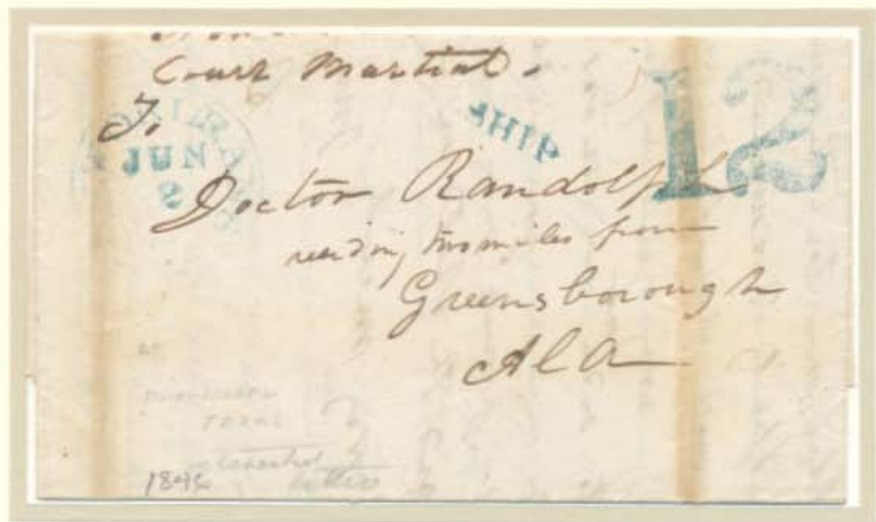 Court Martial.
To
JUN
2
SHIP
12
Doctor Randolph
residing two miles from
Greensborough
Ala
TEXAS
letters